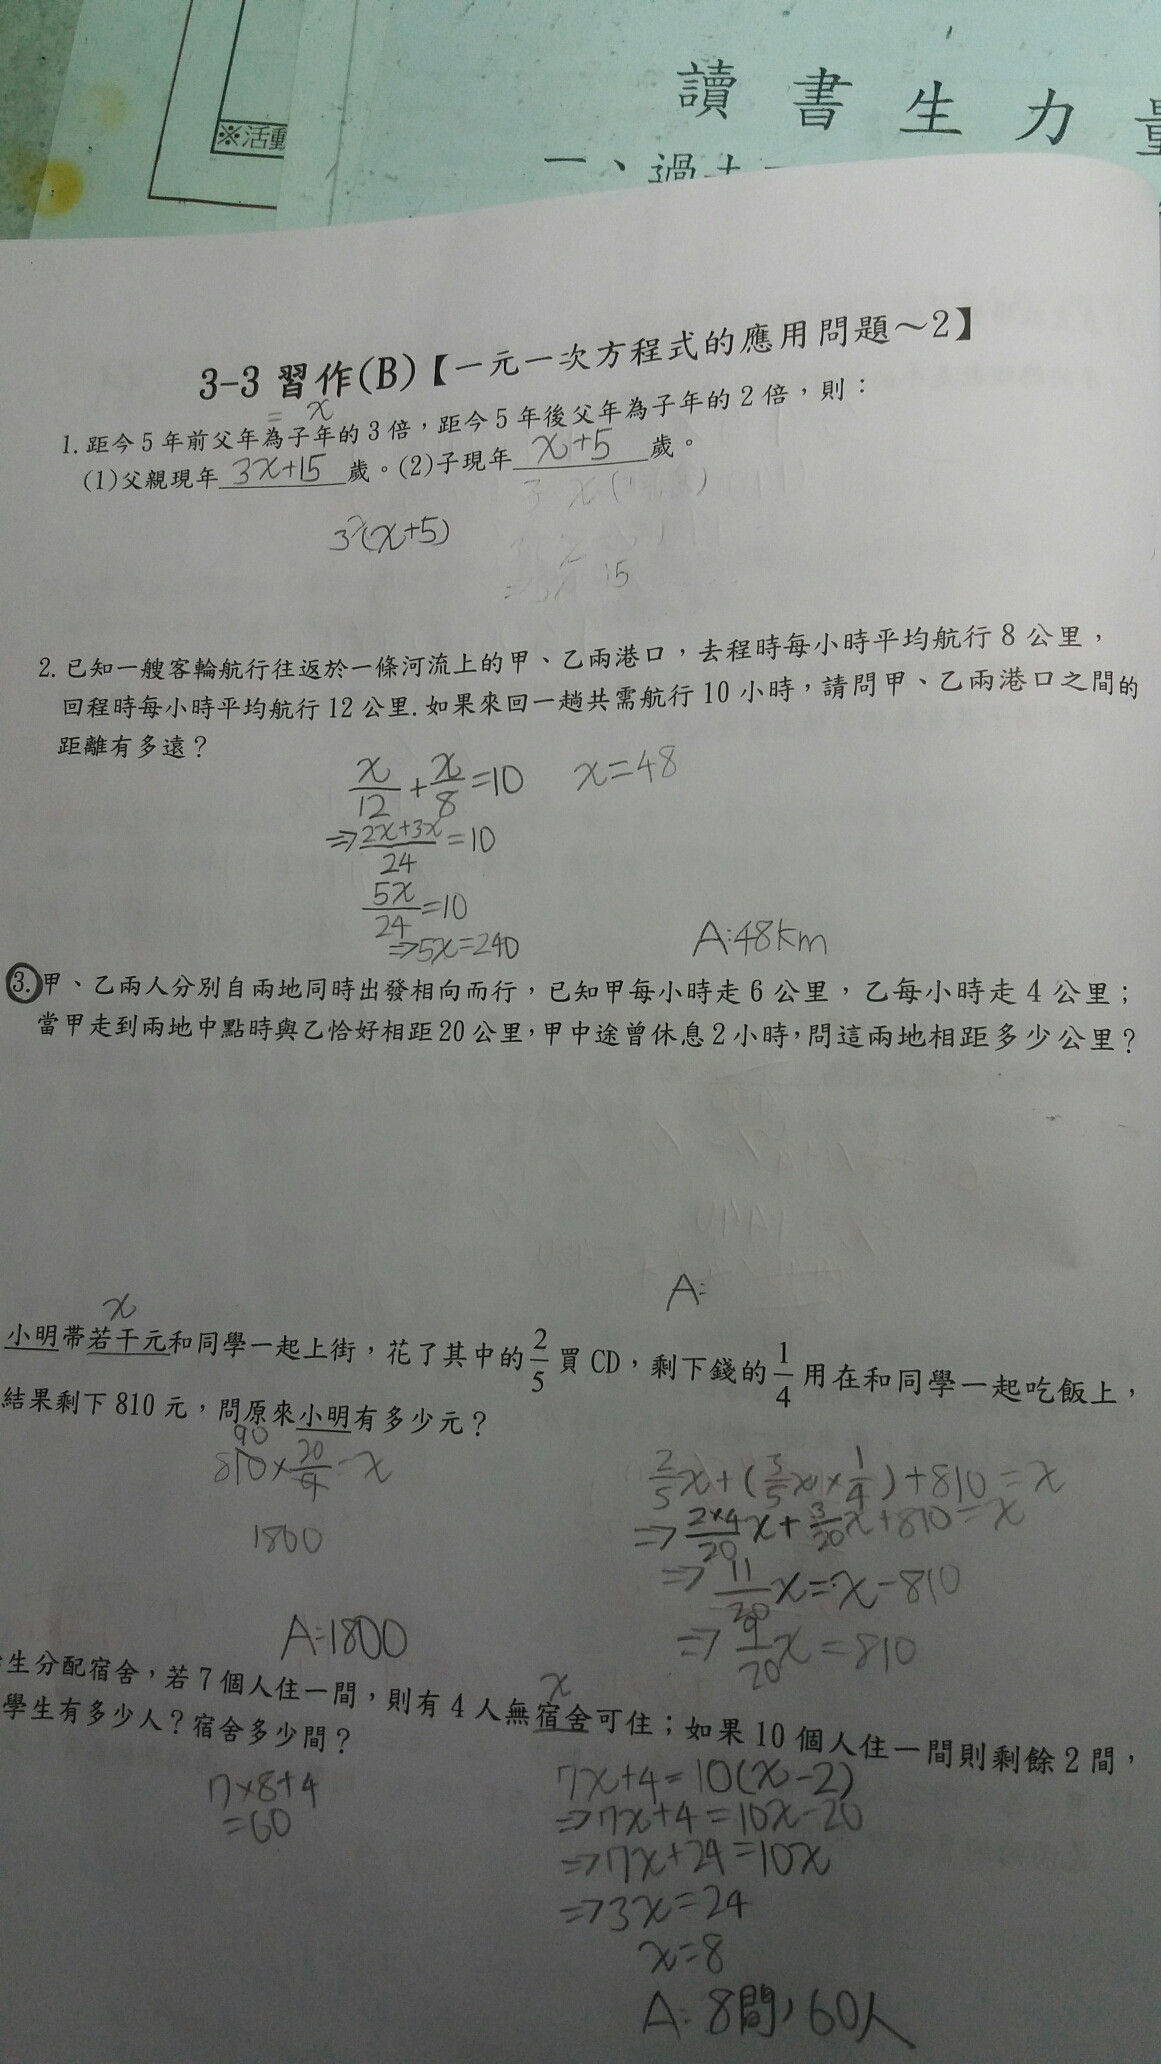 ※活動
讀書生力
一、過去
3-3 習作(B)【一元一次方程式的應用問題～2】
= x
1. 距今5年前父年為子年的3倍，距今5年後父年為子年的2倍，則：
(1)父親現年 3x+15 歲。(2)子現年 x+5 歲。
3(x+5)
15
2. 已知一艘客輪航行往返於一條河流上的甲、乙兩港口，去程時每小時平均航行8公里，
回程時每小時平均航行12公里.如果來回一趟共需航行10小時，請問甲、乙兩港口之間的
距離有多遠？
x/12 + x/8 = 10 x=48
⇒ (2x+3x)/24 = 10
5x/24 = 10
⇒5x=240
A:48km
3. 甲、乙兩人分別自兩地同時出發相向而行，已知甲每小時走6公里，乙每小時走4公里；
當甲走到兩地中點時與乙恰好相距20公里，甲中途曾休息2小時，問這兩地相距多少公里？
A:
x
小明帶若干元和同學一起上街，花了其中的2/5買CD，剩下錢的1/4用在和同學一起吃飯上，
結果剩下810元，問原來小明有多少元？
90
810×20/9=x
1800
2/5x+(3/5x×1/4)+810=x
⇒ 2×4/20x+3/20x+810=x
⇒ 11/20x=x-810
⇒ 9/20x=810
A:1800
生分配宿舍，若7個人住一間，則有4人無宿舍可住；如果10個人住一間則剩餘2間，
x
學生有多少人？宿舍多少間？
7×8+4
=60
7x+4=10(x-2)
⇒7x+4=10x-20
⇒7x+24=10x
⇒3x=24
x=8
A: 8間，60人